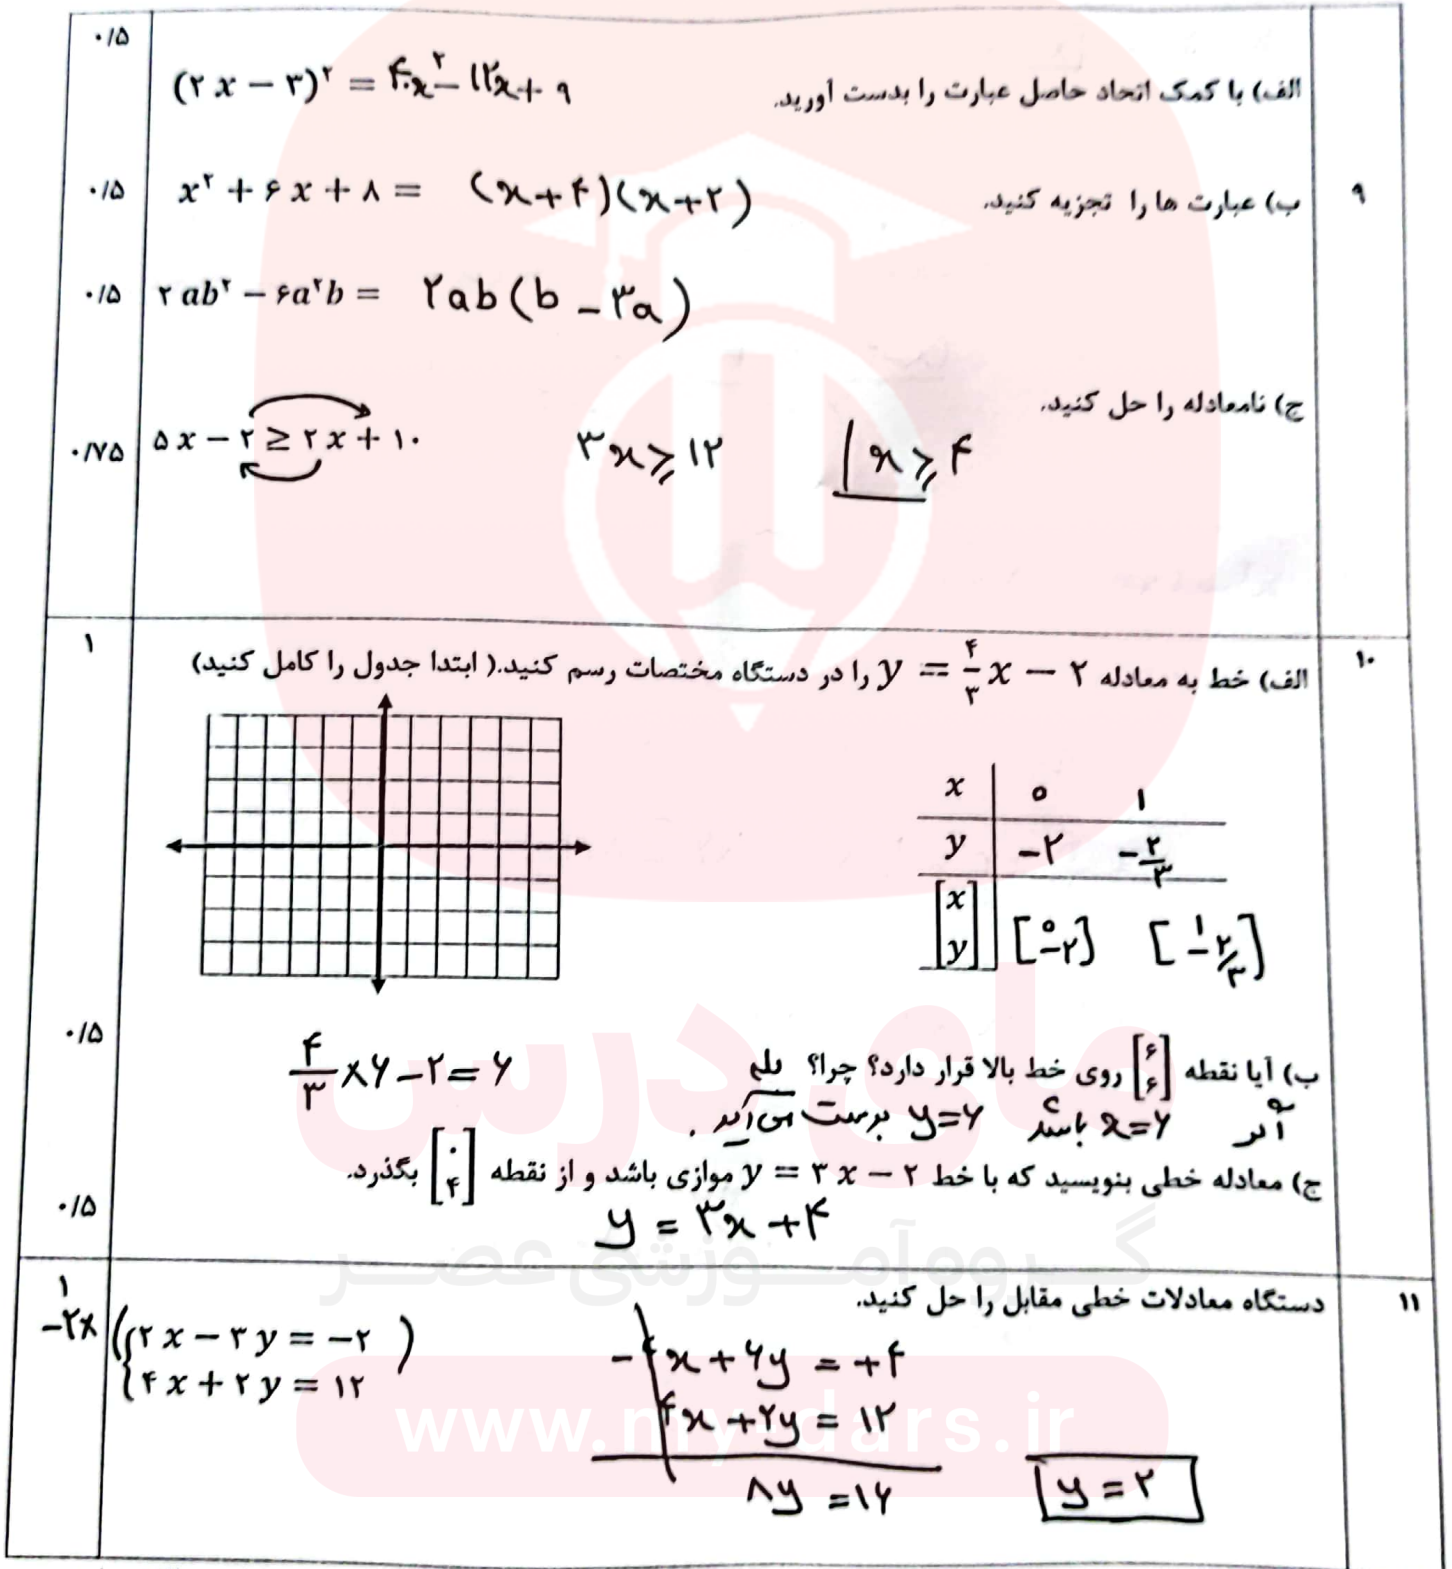 ۹
الف) با کمک اتحاد حاصل عبارت را بدست آورید.
(۲x − ۳)² = ۴x² − ۱۲x + ۹
۰/۵
ب) عبارت ها را تجزیه کنید.
x² + ۶x + ۸ = (x+۴)(x+۲)
۰/۵
۲ab² − ۶a²b = ۲ab(b − ۳a)
۰/۵
ج) نامعادله را حل کنید.
۵x − ۲ ≥ ۲x + ۱۰ ۳x ≥ ۱۲ x ≥ ۴
۰/۷۵
۱۰
الف) خط به معادله y = ۴/۳ x − ۲ را در دستگاه مختصات رسم کنید.( ابتدا جدول را کامل کنید)
۱
x ۰ ۱
y −۲ −۲/۳
[x y] [۰ −۲] [۱ −۲/۳]
ب) آیا نقطه [۶ ۶] روی خط بالا قرار دارد؟ چرا؟ بله
۴/۳ × ۶ − ۲ = ۶
۰/۵
x=۶ باشد y=۶ بدست می آید .
ج) معادله خطی بنویسید که با خط y = ۳x − ۲ موازی باشد و از نقطه [۰ ۴] بگذرد.
y = ۳x + ۴
۰/۵
۱۱
دستگاه معادلات خطی مقابل را حل کنید.
۱
−۲× (۲x − ۳y = −۲)
۴x + ۲y = ۱۲
−۴x + ۶y = +۴
۴x + ۲y = ۱۲
۸y = ۱۶
y = ۲
مای درس
گروه آموزشی عصر
www.my-dars.ir